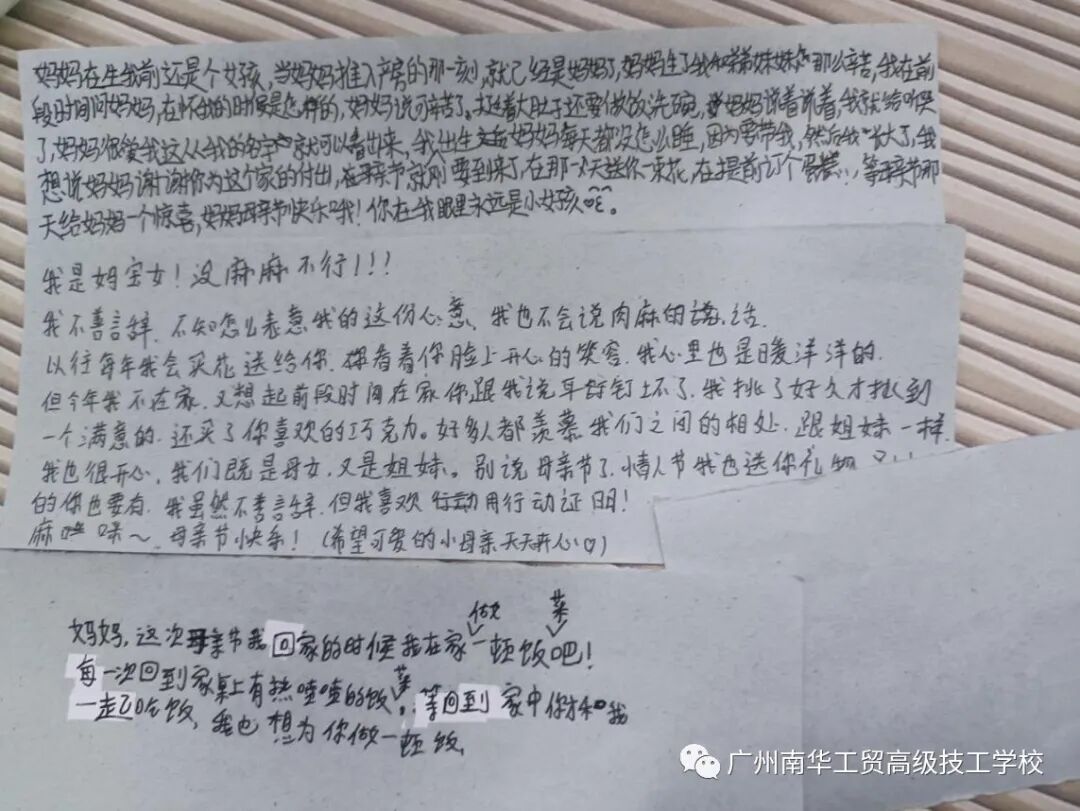 妈妈在生我前还是个女孩,当妈妈推入产房的那一刻,就已经是妈妈了,妈妈生了我和弟弟妹妹那么辛苦,我在前
段时间问妈妈,在怀我的时候是怎样的,妈妈说可辛苦了,挺着大肚子还要做饭洗碗,妈妈说着说着,我就给听哭
了,妈妈很爱我这从我的名字就可以看出来,我出生之后妈妈每天都没怎么睡,因为要带我,然后我长大了,我
想说妈妈谢谢你为这个家的付出,母亲节就刚要到来了,在那一天送你一束花,在提前订个蛋糕,等母亲节那
天给妈妈一个惊喜,妈妈母亲节快乐哦!你在我眼里永远是小女孩吧。
我是妈宝女!没麻麻不行!!!
我不善言辞.不知怎么表意我的这份心意、我也不会说肉麻的话.
以往每年我会买花送给你.看着你脸上开心的笑容.我心里也是暖洋洋的.
但今年我不在家.又想起前段时间在家你跟我说耳钉坏了.我挑了好久才挑到
一个满意的.还买了你喜欢的巧克力。好多人都羡慕我们之间的相处.跟姐妹一样.
我也很开心,我们既是母女.又是姐妹。别说母亲节了.情人节我也送你礼物
的你也要有.我虽然不善言辞.但我喜欢行动用行动证明!
麻 咪~ 母亲节快乐!(希望可爱的小母亲天天开心♡)
妈妈,这次母亲节我回家的时候我在家做一顿饭菜吧!
每一次回到家桌上有热喳喳的饭菜。等回到家中你才和我
一起吃饭,我也想为你做一顿饭,
广州南华工贸高级技工学校